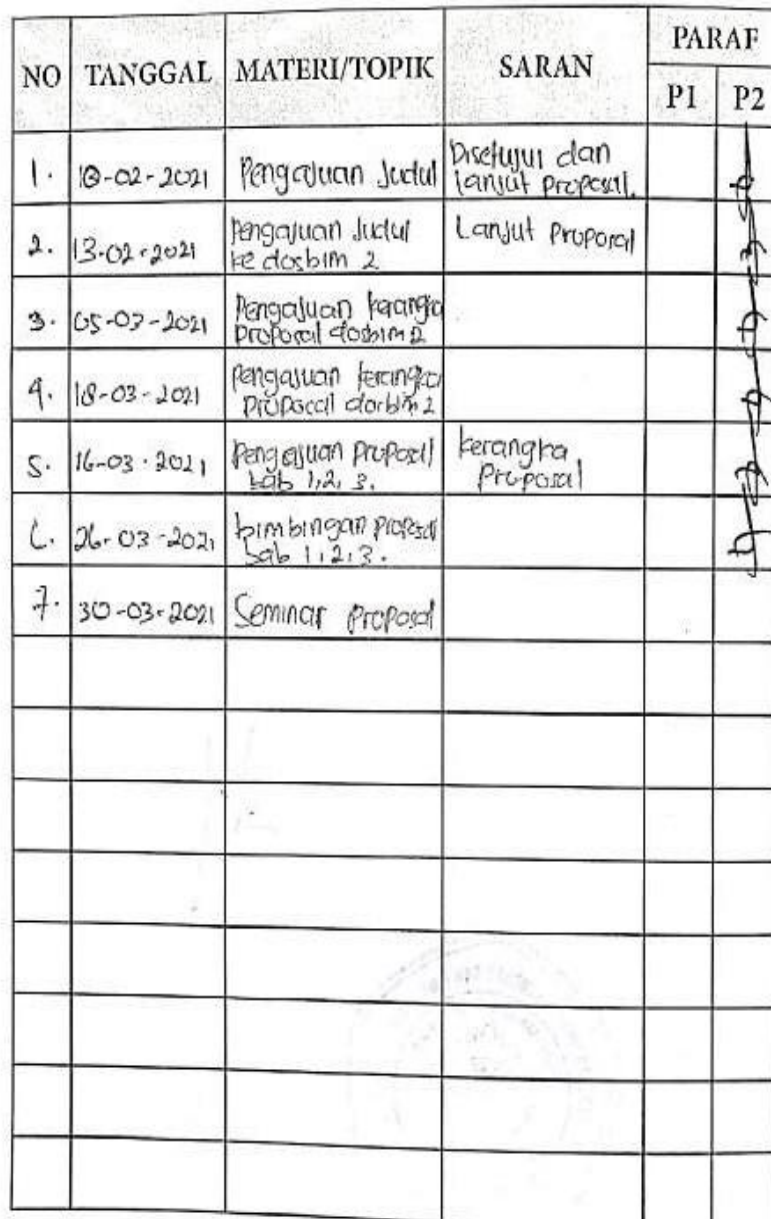 NO TANGGAL MATERI/TOPIK SARAN PARAF
P1 P2
1. 10-02-2021 Pengajuan Judul Disetujui dan
lanjut proposal.
2. 13-02-2021 Pengajuan Judul Lanjut Proposal
ke dosbim 2
3. 05-03-2021 Pengajuan kerangka
proposal dosbim 2
4. 18-03-2021 Pengajuan kerangka
proposal dosbim 2
5. 16-03-2021 Pengajuan proposal kerangka
bab 1, 2, 3. Proposal
6. 26-03-2021 bimbingan proposal
bab 1, 2, 3.
7. 30-03-2021 Seminar Proposal